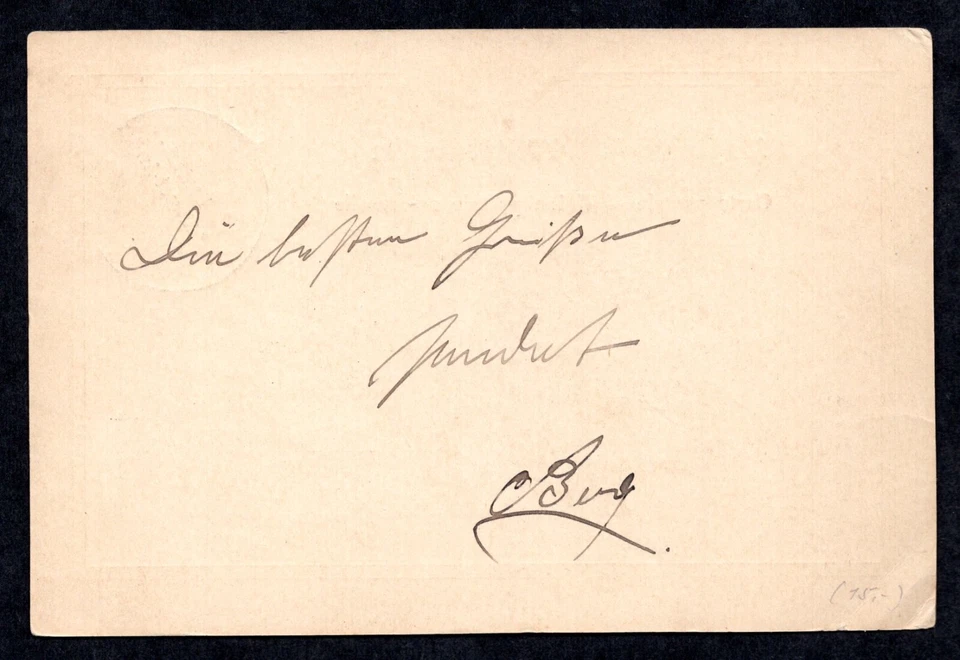 Die besten Grüße
sendet
CBerg
(15.-)